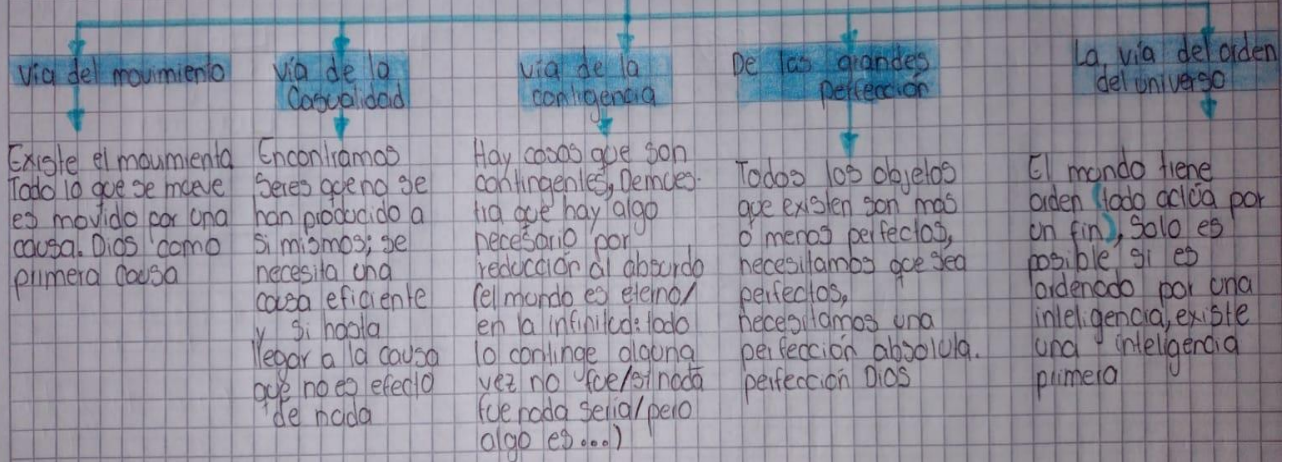 Vía del movimiento
Existe el movimiento
Todo lo que se mueve
es movido por una
causa. Dios como
primera causa
Vía de la
Casualidad
Encontramos
Seres que no se
han producido a
si mismos; se
necesita una
causa eficiente
y si hasta
llegar a la causa
que no es efecto
de nada
Vía de la
contigencia
Hay cosas que son
contingentes, Demues-
tra que hay algo
necesario por
reducción al absurdo
(el mundo es eterno/
en la infinitud: todo
lo continge alguna
vez no fue/si nada
fue nada seria/pero
algo es...)
De las grandes
Perfección
Todos los objetos
que existen son mas
o menos perfectos,
necesitamos que sea
perfectos,
necesitamos una
perfección absoluta.
perfección DIOS
La vía del orden
del universo
El mundo tiene
orden (todo actúa por
un fin), Solo es
posible si es
ordenado por una
inteligencia, existe
una inteligencia
primera